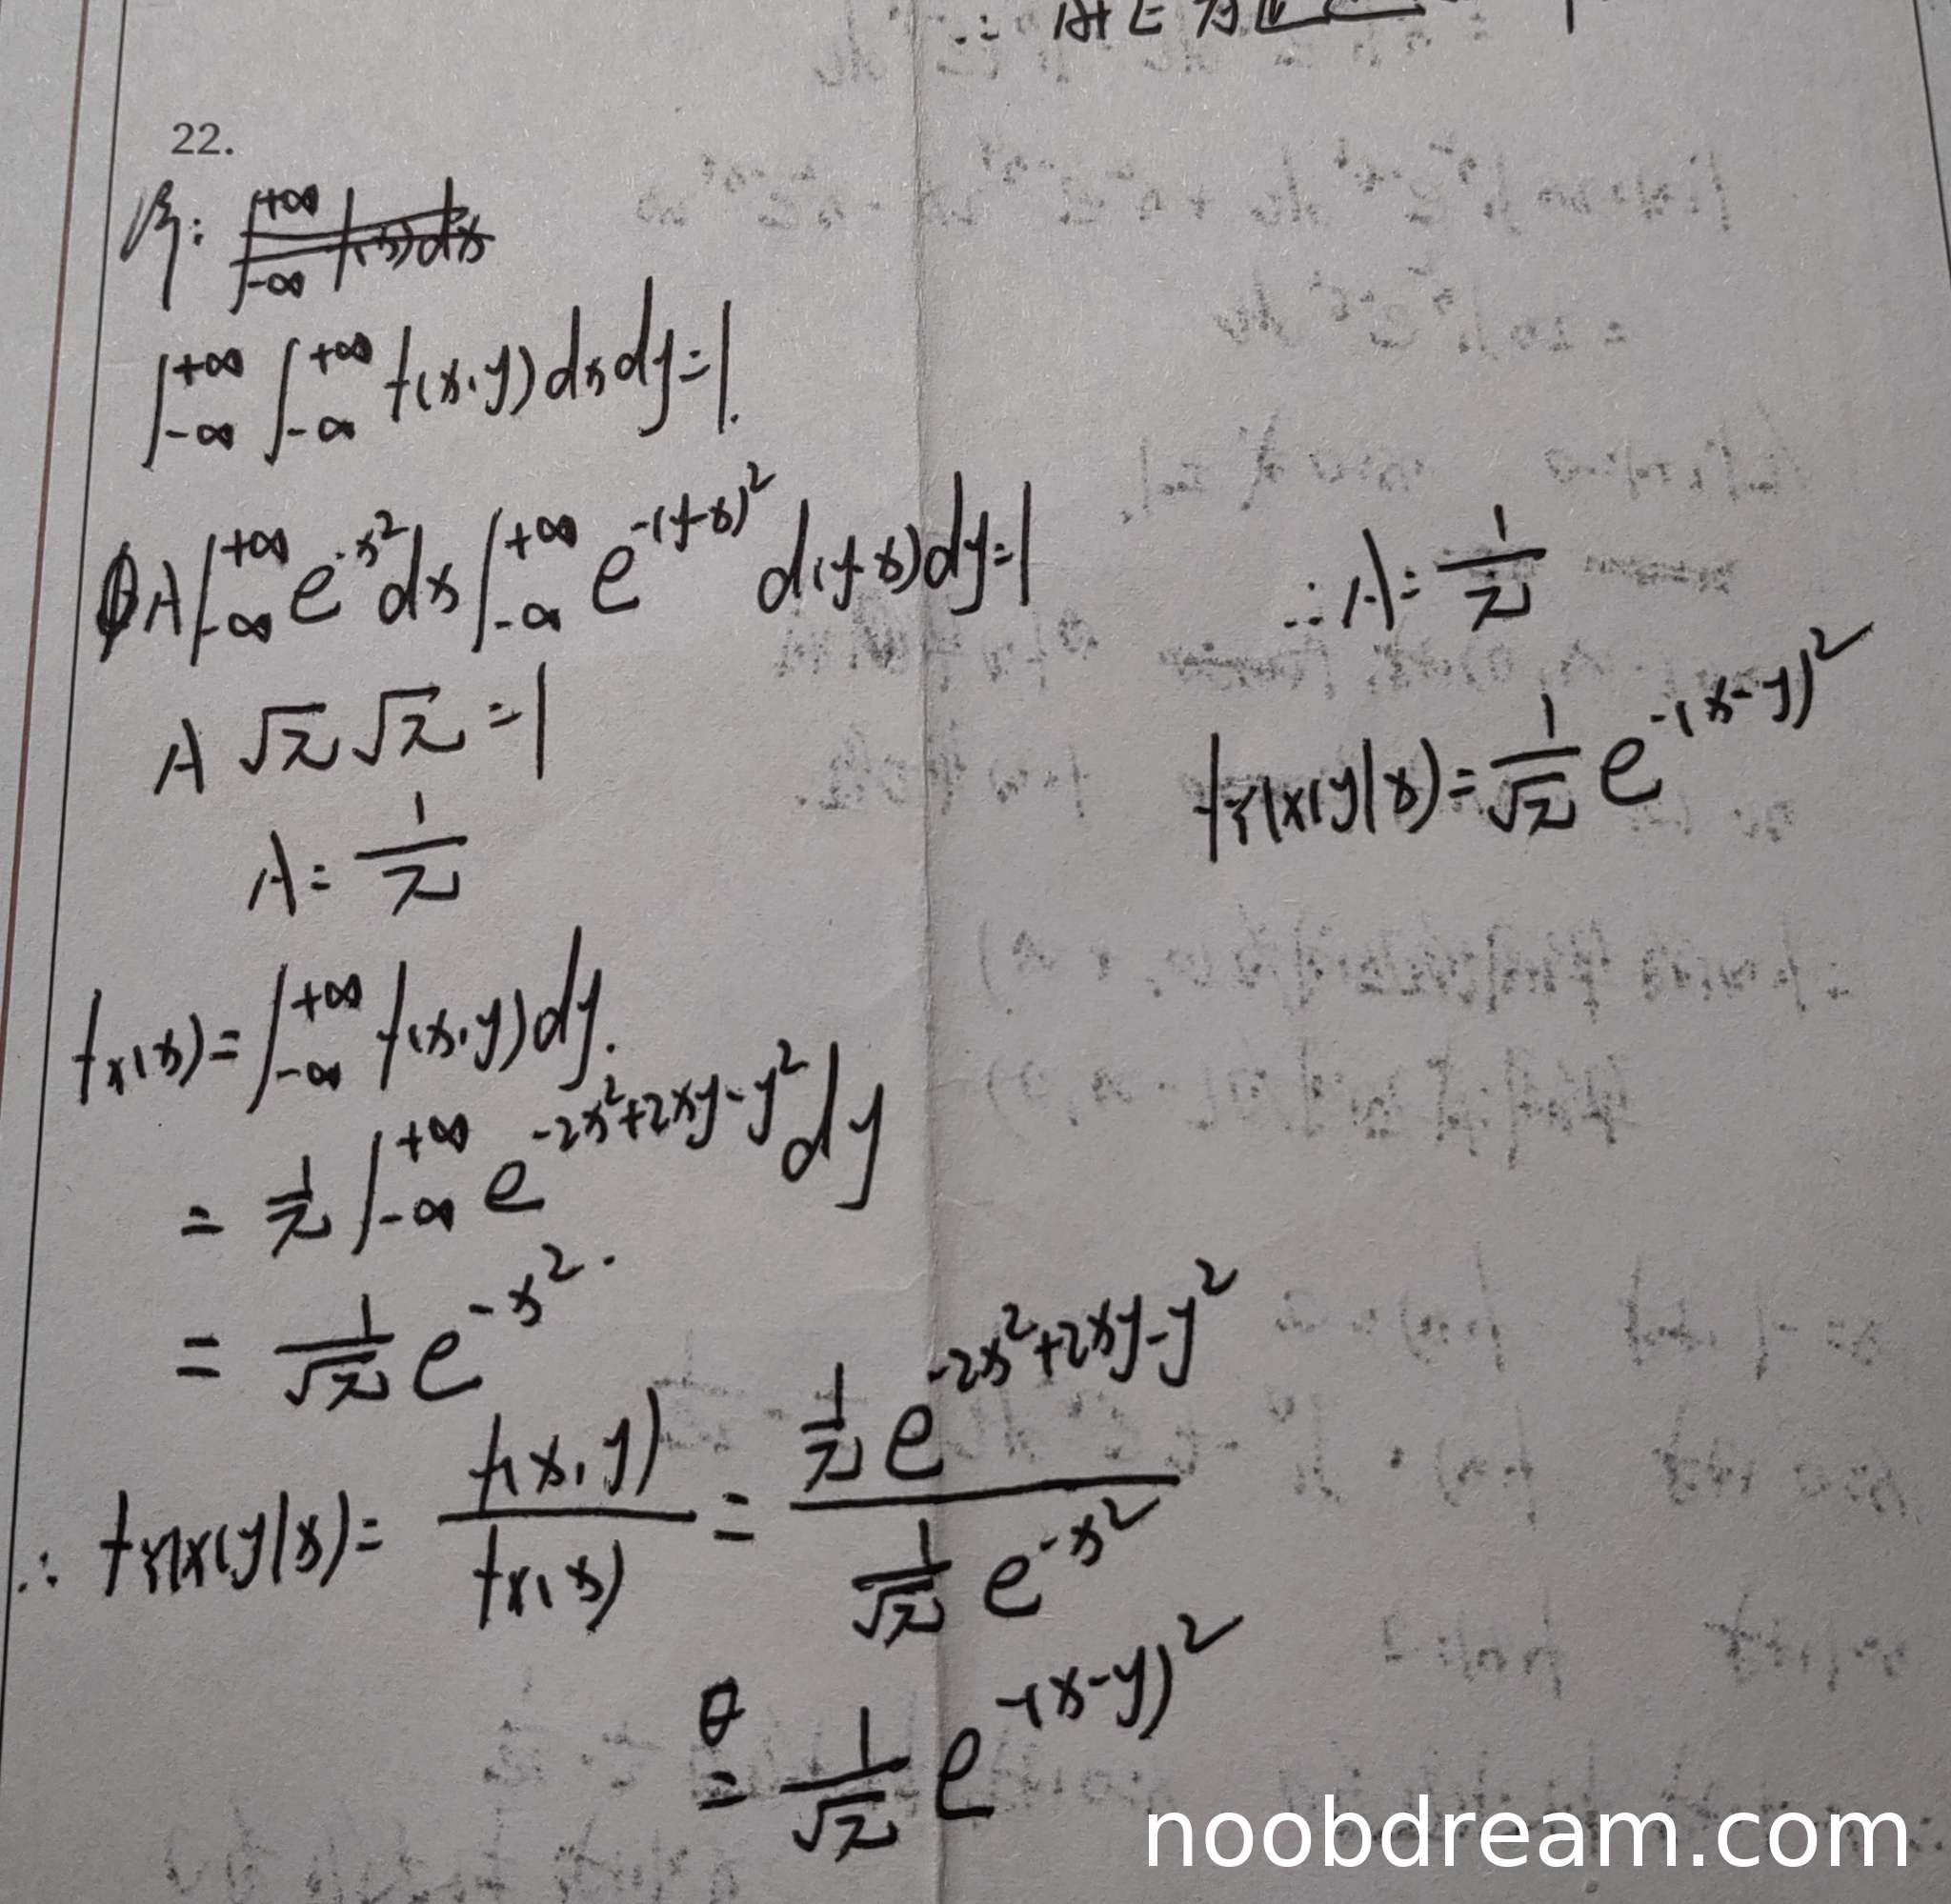 22.
解:
∫_{-∞}^{+∞} f(x)dx
∫_{-∞}^{+∞} ∫_{-∞}^{+∞} f(x,y) dxdy=1.
A∫_{-∞}^{+∞} e^{-x^2}dx ∫_{-∞}^{+∞} e^{-(y-x)^2} d(y-x)dy=1
A √π √π =1
A = 1/π
f_X(x) = ∫_{-∞}^{+∞} f(x,y)dy.
= 1/π ∫_{-∞}^{+∞} e^{-2x^2+2xy-y^2} dy
= 1/√π e^{-x^2}.
∴ f_{Y|X}(y|x) = f(x,y)/f_X(x) = (1/π e^{-2x^2+2xy-y^2})/(1/√π e^{-x^2})
= 1/√π e^{-(x-y)^2}
∴ A = 1/π
f_{Y|X}(y|x) = 1/√π e^{-(x-y)^2}
noobdream.com